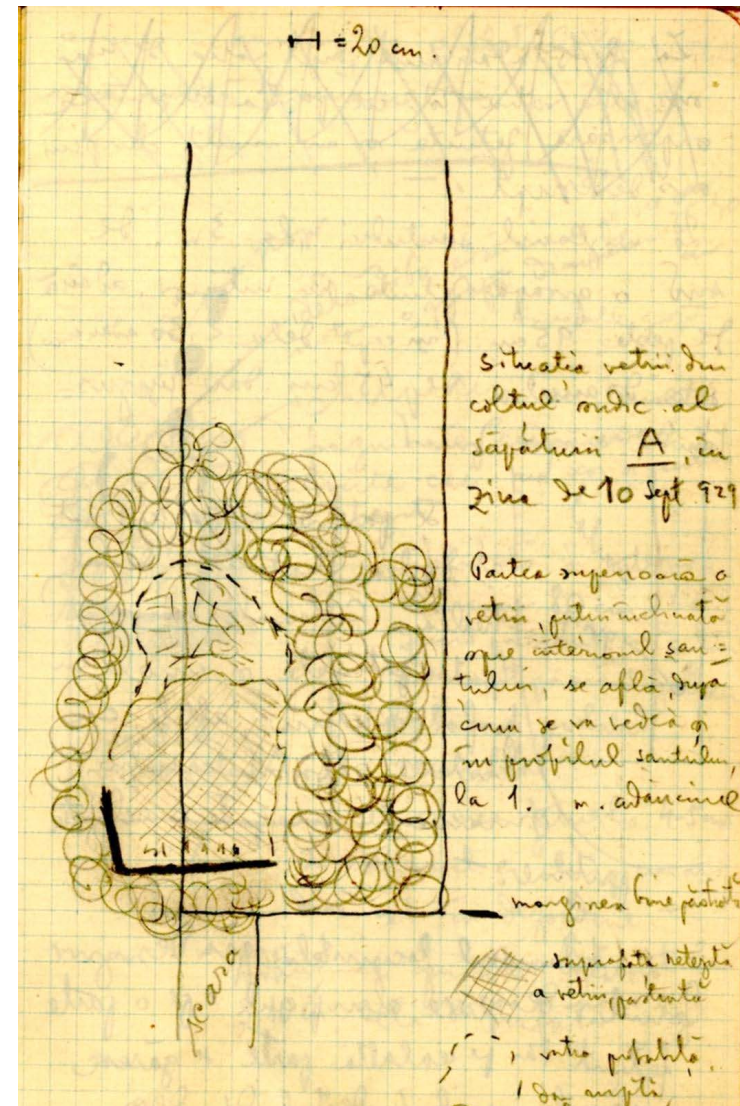 = 20 cm.
Situația vetrii din
colțul sudic al
săpăturii A, în
ziua de 10 Sept 929
Partea superioară a
vetrii, puțin inclinată
spre interiorul șan=
țului, se află, după
cum se va vedea și
în profilul șanțului,
la 1. m. adâncime
marginea bine păstrată
suprafața netezită
a vetrii, păstrată
vatra probabilă,
scara